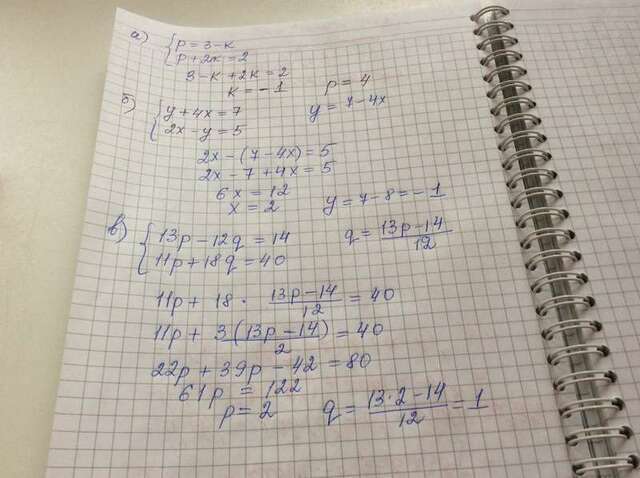 а) { p = 3 - k
p + 2k = 2
3 - k + 2k = 2
k = -1 p = 4
б) { y + 4x = 7 y = 7 - 4x
2x - y = 5
2x - (7 - 4x) = 5
2x - 7 + 4x = 5
6x = 12
x = 2 y = 7 - 8 = -1
в) { 13p - 12q = 14 q = (13p - 14)/12
11p + 18q = 40
11p + 18 · (13p - 14)/12 = 40
11p + 3(13p - 14)/2 = 40
22p + 39p - 42 = 80
61p = 122
p = 2 q = (13·2 - 14)/12 = 1